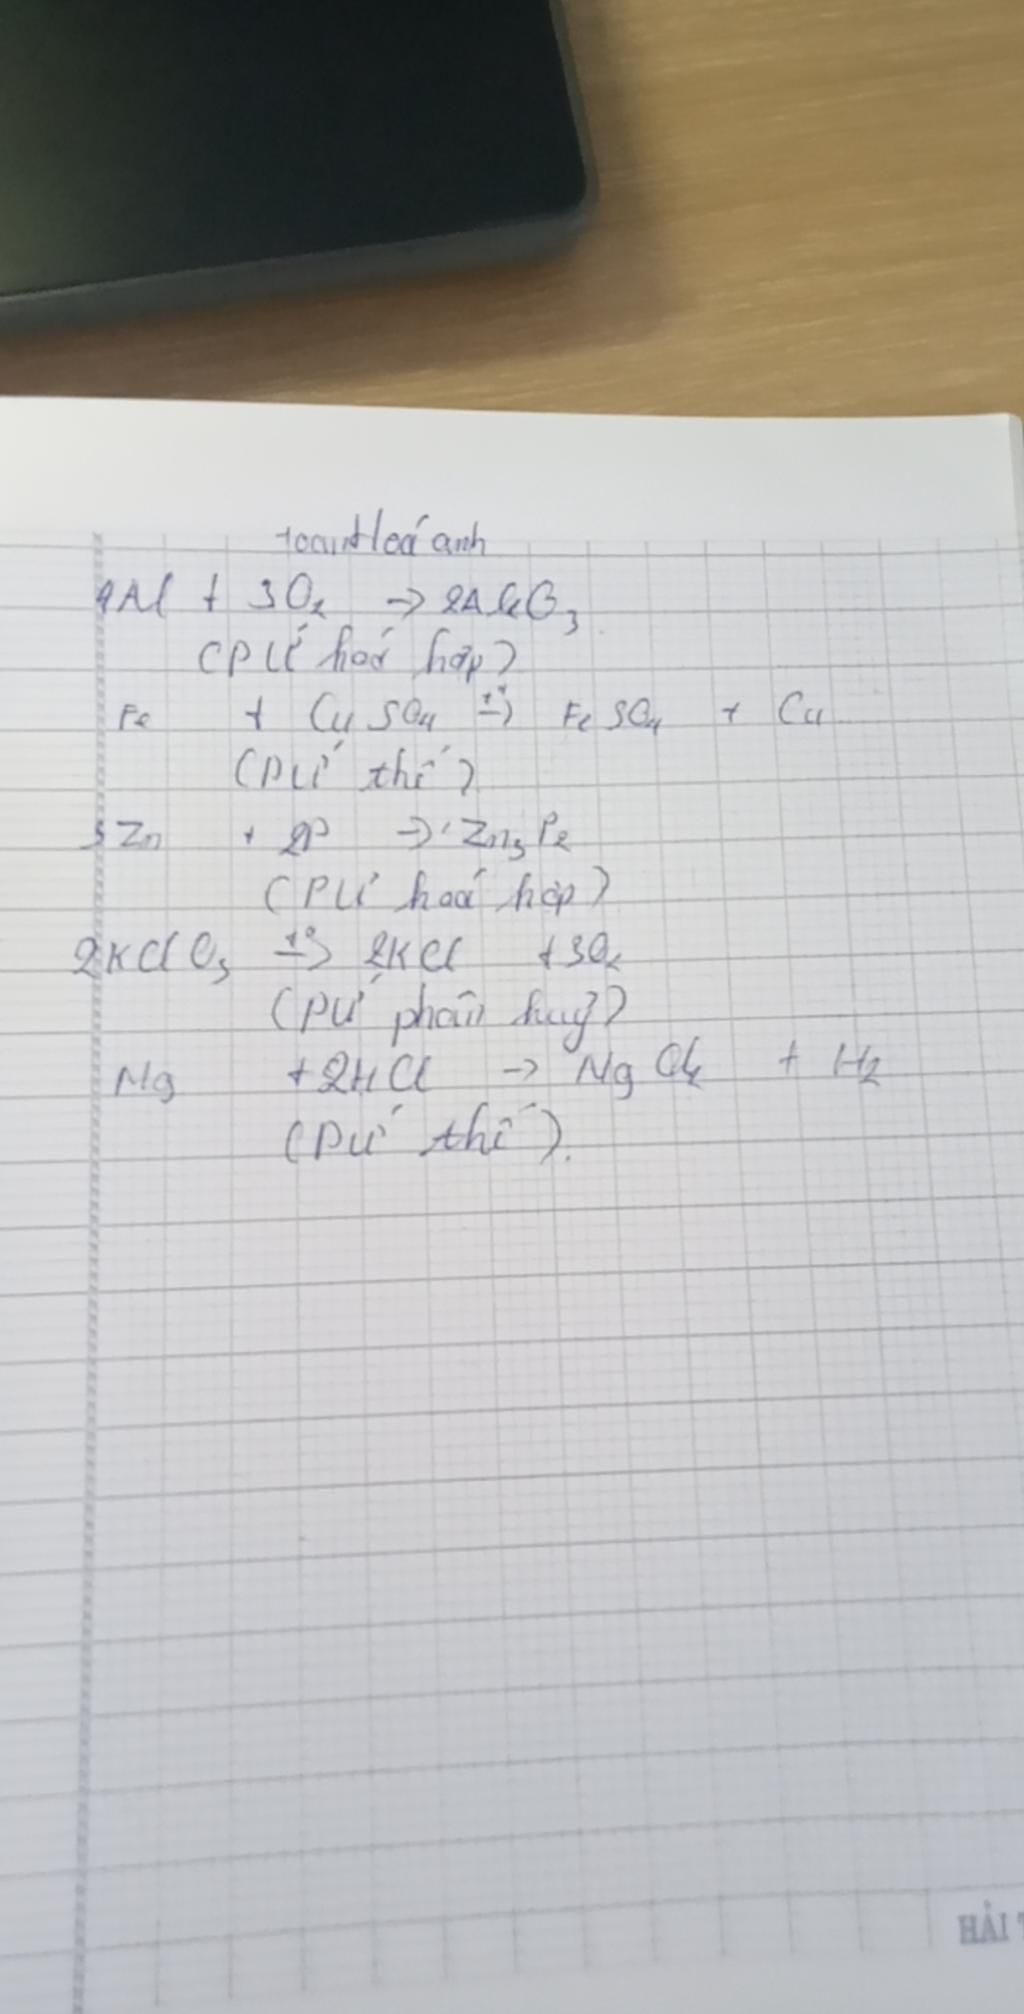 toan Hoá anh
4Al + 3O₂ → 2Al₂O₃
(PƯ hoá hợp)
Fe + CuSO₄ t°→ FeSO₄ + Cu
(PƯ thế)
3Zn + 2P → Zn₃P₂
(PƯ hoá hợp)
2KClO₃ t°→ 2KCl + 3O₂
(PƯ phân huỷ)
Mg + 2HCl → MgCl₂ + H₂
(PƯ thế).
HẢI